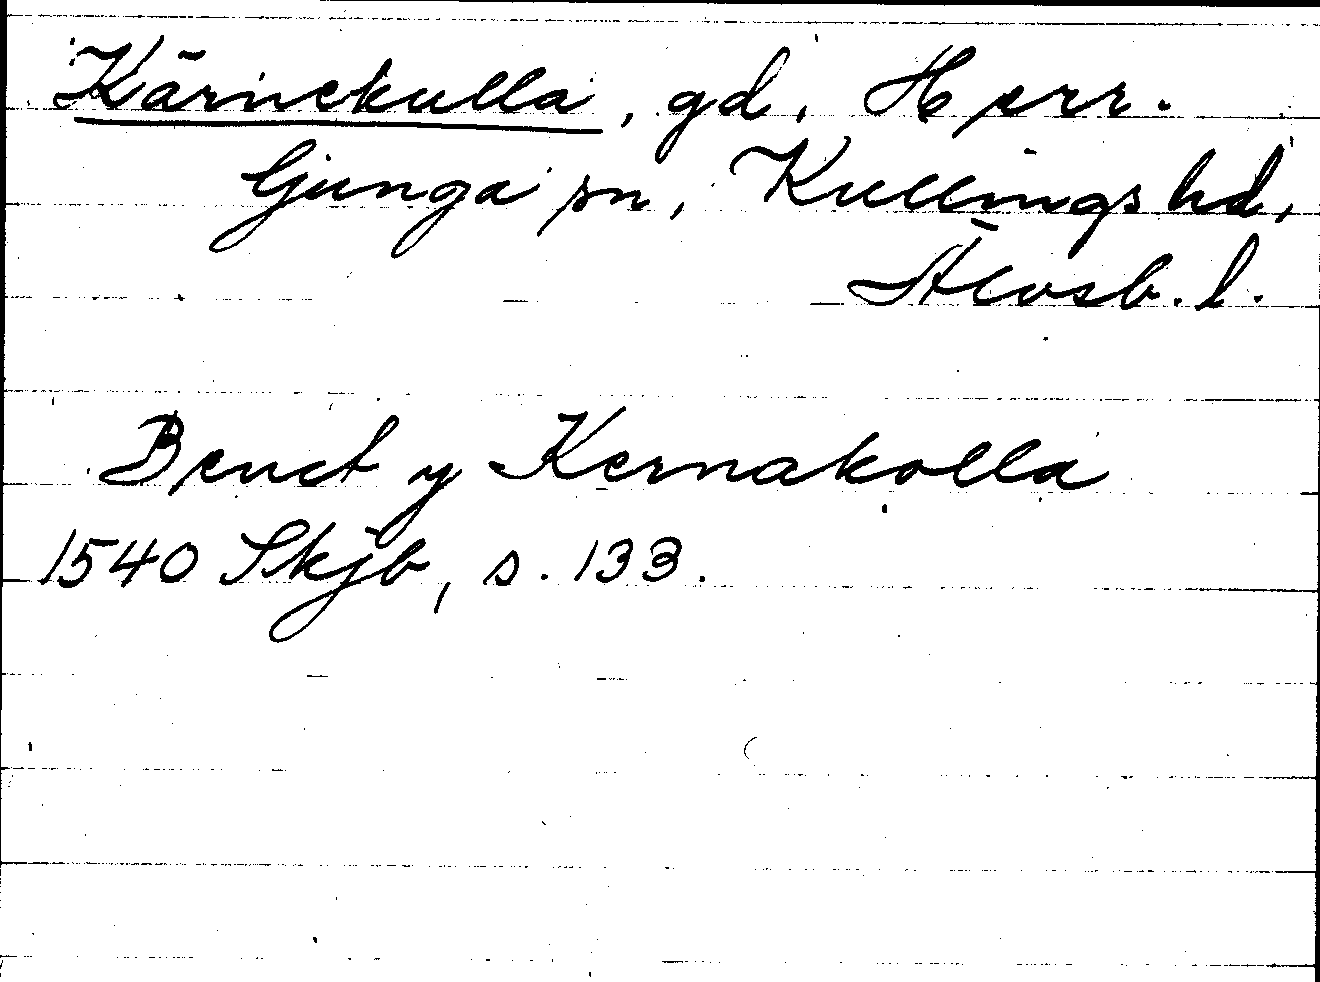 Kärnekulla, gd, Herr.
ljunga sn, Kullings hd,
Älvsb. l.
Benct y Kernakolla
1540 Skjb, s. 133.